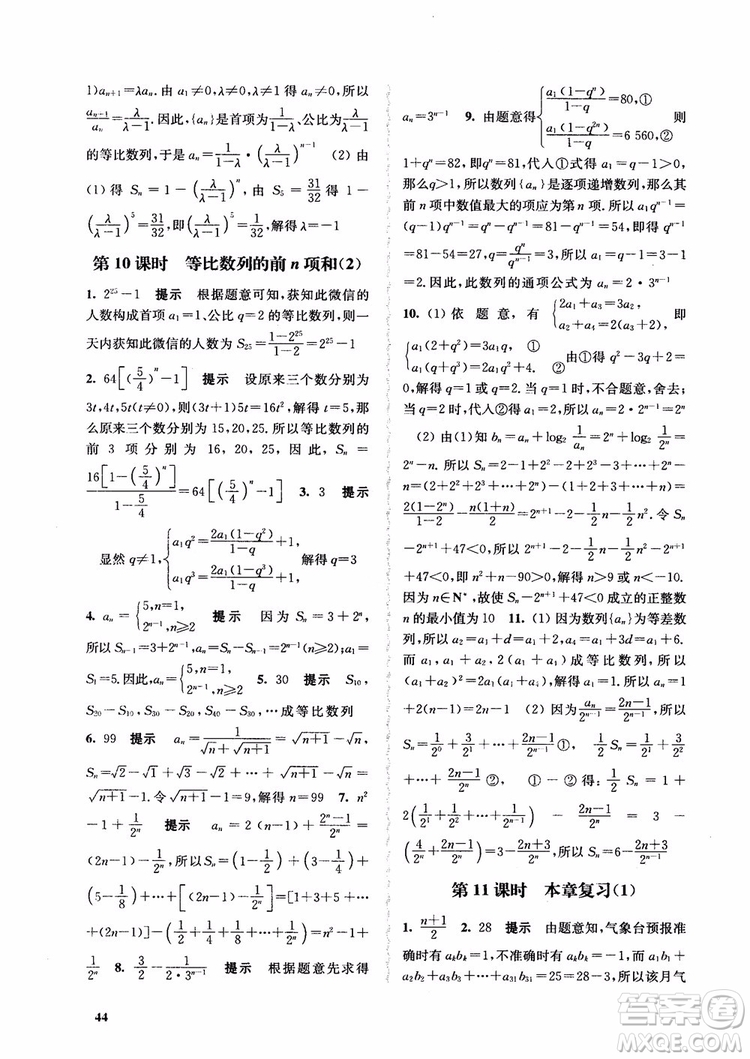 1)aₙ₊₁=λaₙ. 由 a₁≠0,λ≠0 得 aₙ≠0, 所以
aₙ₊₁/aₙ=λ/(λ−1). 因此,{aₙ}是首项为 1/(1−λ)、公比为 λ/(λ−1)
的等比数列,于是 aₙ=1/(1−λ)·(λ/(λ−1))ⁿ⁻¹ (2) 由
(1) 得 Sₙ=1−(λ/(λ−1))ⁿ, 由 S₅=31/32 得 1−
(λ/(λ−1))⁵=31/32,即(λ/(λ−1))⁵=1/32,解得 λ=−1
第 10 课时 等比数列的前 n 项和(2)
1. 2²⁵−1 提示 根据题意可知,获知此微信的
人数构成首项 a₁=1、公比 q=2 的等比数列,则一
天内获知此微信的人数为 S₂₅=(1−2²⁵)/(1−2)=2²⁵−1
2. 64[(5/4)ⁿ−1] 提示 设原来三个数分别为
3t,4t,5t(t≠0),则(3t+1)5t=16t², 解得 t=5,那
么原来三个数分别为 15,20,25. 所以等比数列的
前 3 项分别为 16, 20, 25, 因此, Sₙ=
16[1−(5/4)ⁿ]/(1−5/4)=64[(5/4)ⁿ−1] 3. 3 提示
显然 q≠1,{a₁q²=2a₁(1−q²)/(1−q)+1, a₁q³=2a₁(1−q³)/(1−q)+1 解得 q=3
4. aₙ={5,n=1, 2ⁿ⁻¹,n≥2 提示 因为 Sₙ=3+2ⁿ,
所以 Sₙ₋₁=3+2ⁿ⁻¹,aₙ=Sₙ−Sₙ₋₁=2ⁿ⁻¹(n≥2),a₁=
S₁=5. 所以 aₙ={5,n=1, 2ⁿ⁻¹,n≥2 5. 30 提示 S₁₀,
S₂₀−S₁₀,S₃₀−S₂₀,S₄₀−S₃₀,…成等比数列
6. 99 提示 aₙ=1/(√n+√(n+1))=√(n+1)−√n,
Sₙ=√2−√1+√3−√2+√4−√3+…+√(n+1)−√n
=√(n+1)−1. 令√(n+1)−1=9,解得 n=99 7. n²
−1+1/2ⁿ 提示 aₙ=2n−1+(2ⁿ−1)/2ⁿ−1=
(2n−1)−1/2ⁿ,所以 Sₙ=(1−1/2)+(3−1/4)+
(5−1/8)+…+[(2n−1)−1/2ⁿ]=[1+3+5+…+
(2n−1)]−(1/2+1/4+1/8+…+1/2ⁿ)=n²−1+
1/2ⁿ 8. 3/2−1/(2·3ⁿ⁻¹) 提示 根据题意先求得
aₙ=3ⁿ⁻¹ 9. 由题意得{a₁(1−qⁿ)/(1−q)=80,① a₁(1−q²ⁿ)/(1−q)=6 560,② 则
1+qⁿ=82, 即 qⁿ=81,代入①式得 a₁=q−1>0,即
q>1, 所以数列{aₙ}是逐项递增数列,那么其前
前 n 项中数值最大的项应为第 n 项. 所以 a₁qⁿ⁻¹=
(q−1)qⁿ⁻¹=qⁿ−qⁿ⁻¹=81−qⁿ⁻¹=54, 则 qⁿ⁻¹
=81−54=27,q=qⁿ/qⁿ⁻¹=81/27=3. 所以 a₁=q−1=3−1
=2. 因此,此数列的通项公式为 aₙ=2·3ⁿ⁻¹
10. (1) 依题意, 有{2a₁+a₃=3a₂, a₂+a₄=2(a₃+2), 即
{a₁(2+q²)=3a₁q, ① a₁(q+q³)=2a₁q²+4. ② 由①得 q²−3q+2=0,解得
q=1 或 q=2. 当 q=1 时,不合题意,舍去;
当 q=2 时,代入②得 a₁=2,所以 aₙ=2·2ⁿ⁻¹=2ⁿ
(2) 由(1)知 bₙ=aₙ+log₂ 1/aₙ=2ⁿ+log₂ 1/2ⁿ=
2ⁿ−n. 所以 Sₙ=2−1+2²−2+2³−3+…+2ⁿ−n=
2(1−2ⁿ)/(1−2)−n(1+n)/2=2ⁿ⁺¹−2−1/2n−1/2n². 令 Sₙ
−2ⁿ⁺¹+47<0,则 2ⁿ⁺¹−2−1/2n−1/2n²−2ⁿ⁺¹
+47<0,即 n²+n−90>0, 所以 n>9 或 n<−10.
因为 n∈N*,故使 Sₙ−2ⁿ⁺¹+47<0 成立的正整数
n 的最小值为 10 11. (1) 因为数列{aₙ}为等差数
列, 所以 a₂=1+d,a₄=1+3d, 所以 a₄+1=6.
而 a₁, a₁+a₂, 2(a₁+a₄) 成等比数列, 所以
(a₁+a₂)²=2a₁(a₁+a₄), 解得 d=2, 所以 aₙ=1
+2(n−1)=2n−1 (2) 因为 aₙ/2ⁿ⁻¹=(2n−1)/2ⁿ⁻¹, 所以
Sₙ=1/2⁰+3/2¹+…+(2n−1)/2ⁿ⁻¹ ①, 1/2Sₙ=1/2¹+3/2²
+…+(2n−1)/2ⁿ ②, ①−②得: 1/2Sₙ=1+
2(1/2+1/2²+…+1/2ⁿ⁻¹)−(2n−1)/2ⁿ=3−
(4/2ⁿ+(2n−1)/2ⁿ)=3−(2n+3)/2ⁿ,所以 Sₙ=6−(2n+3)/2ⁿ⁻¹
第 11 课时 本章复习(1)
1. (n+1)/2 2. 28 提示 由题意知,气象台预报准
确时有 aₖbₖ=1,不准确时有 aₖbₖ=−1, 而 a₁b₁+
a₂b₂+a₃b₃+…+a₃₁b₃₁=31−3=28,所以该月气
44
答案圈
MXQE.COM